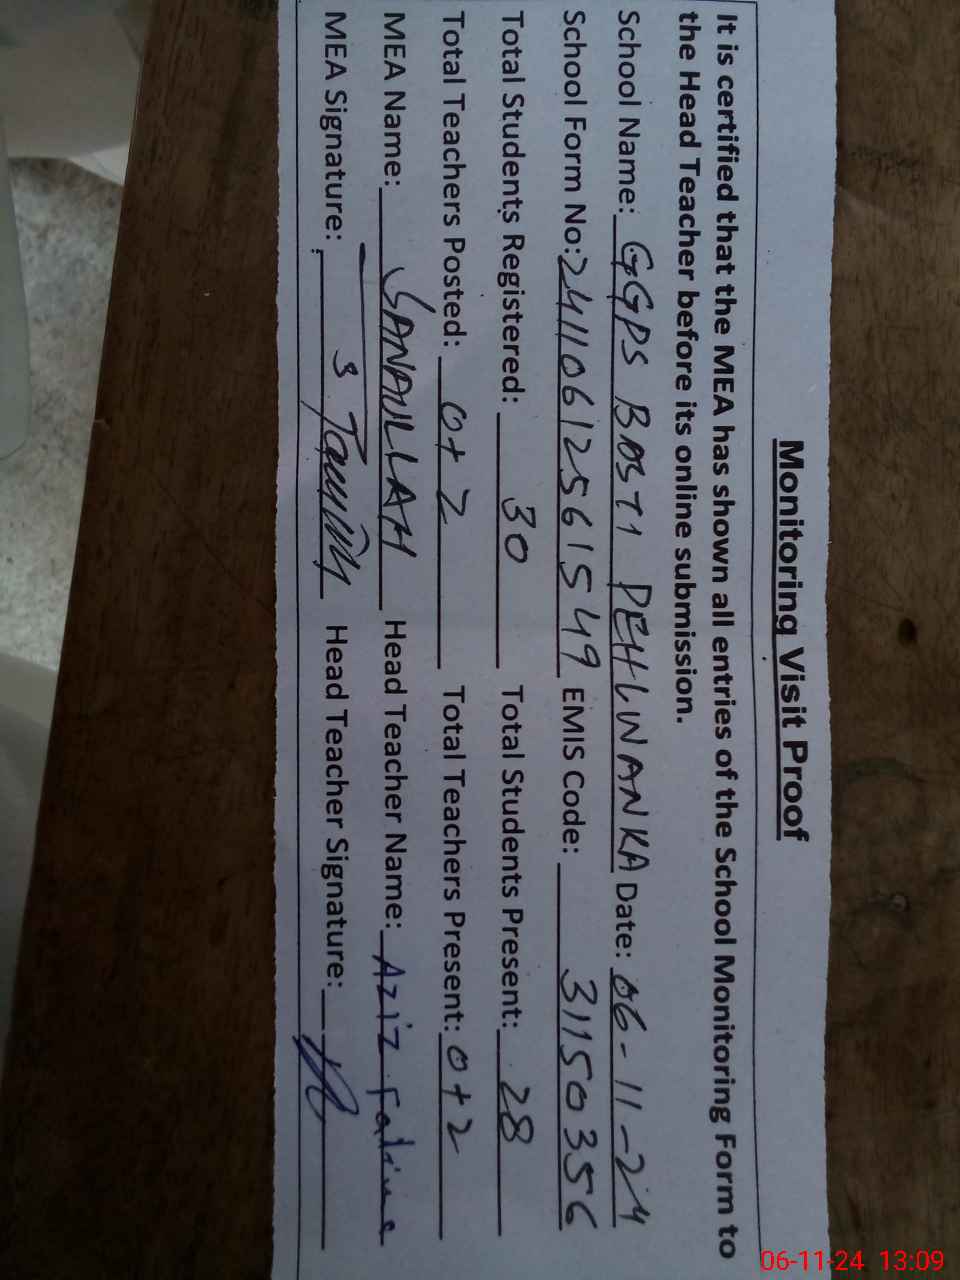 Monitoring Visit Proof
It is certified that the MEA has shown all entries of the School Monitoring Form to
the Head Teacher before its online submission.
School Name: GGPS BASTI PEHLWANKA Date: 06-11-24
School Form No: 24110612561549 EMIS Code: 31150356
Total Students Registered: 30 Total Students Present: 28
Total Teachers Posted: 0+2 Total Teachers Present: 0+2
MEA Name: SANAULLAH Head Teacher Name: Aziz Fatima
MEA Signature: Head Teacher Signature:
06-11-24 13:09